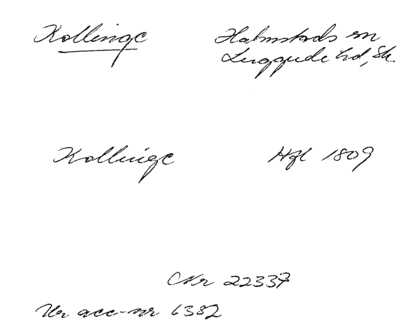 Kollinge Halmstads sn
Luggude hd, Sk.
Kollinge Hfl 1809
Nr 22337
Ur acc-nr 6382